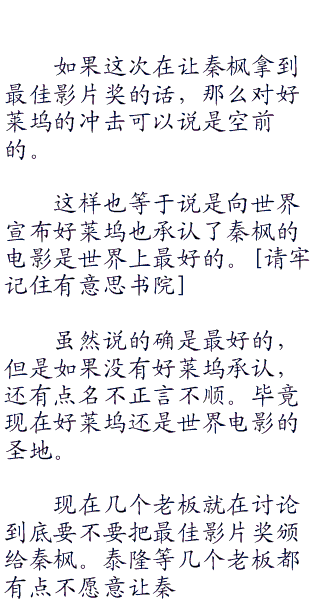 如果这次在让秦枫拿到
最佳影片奖的话，那么对好
莱坞的冲击可以说是空前
的。
这样也等于说是向世界
宣布好莱坞也承认了秦枫的
电影是世界上最好的。[请牢
记住有意思书院]
虽然说的确是最好的，
但是如果没有好莱坞承认，
还有点名不正言不顺。毕竟
现在好莱坞还是世界电影的
圣地。
现在几个老板就在讨论
到底要不要把最佳影片奖颁
给秦枫。泰隆等几个老板都
有点不愿意让秦